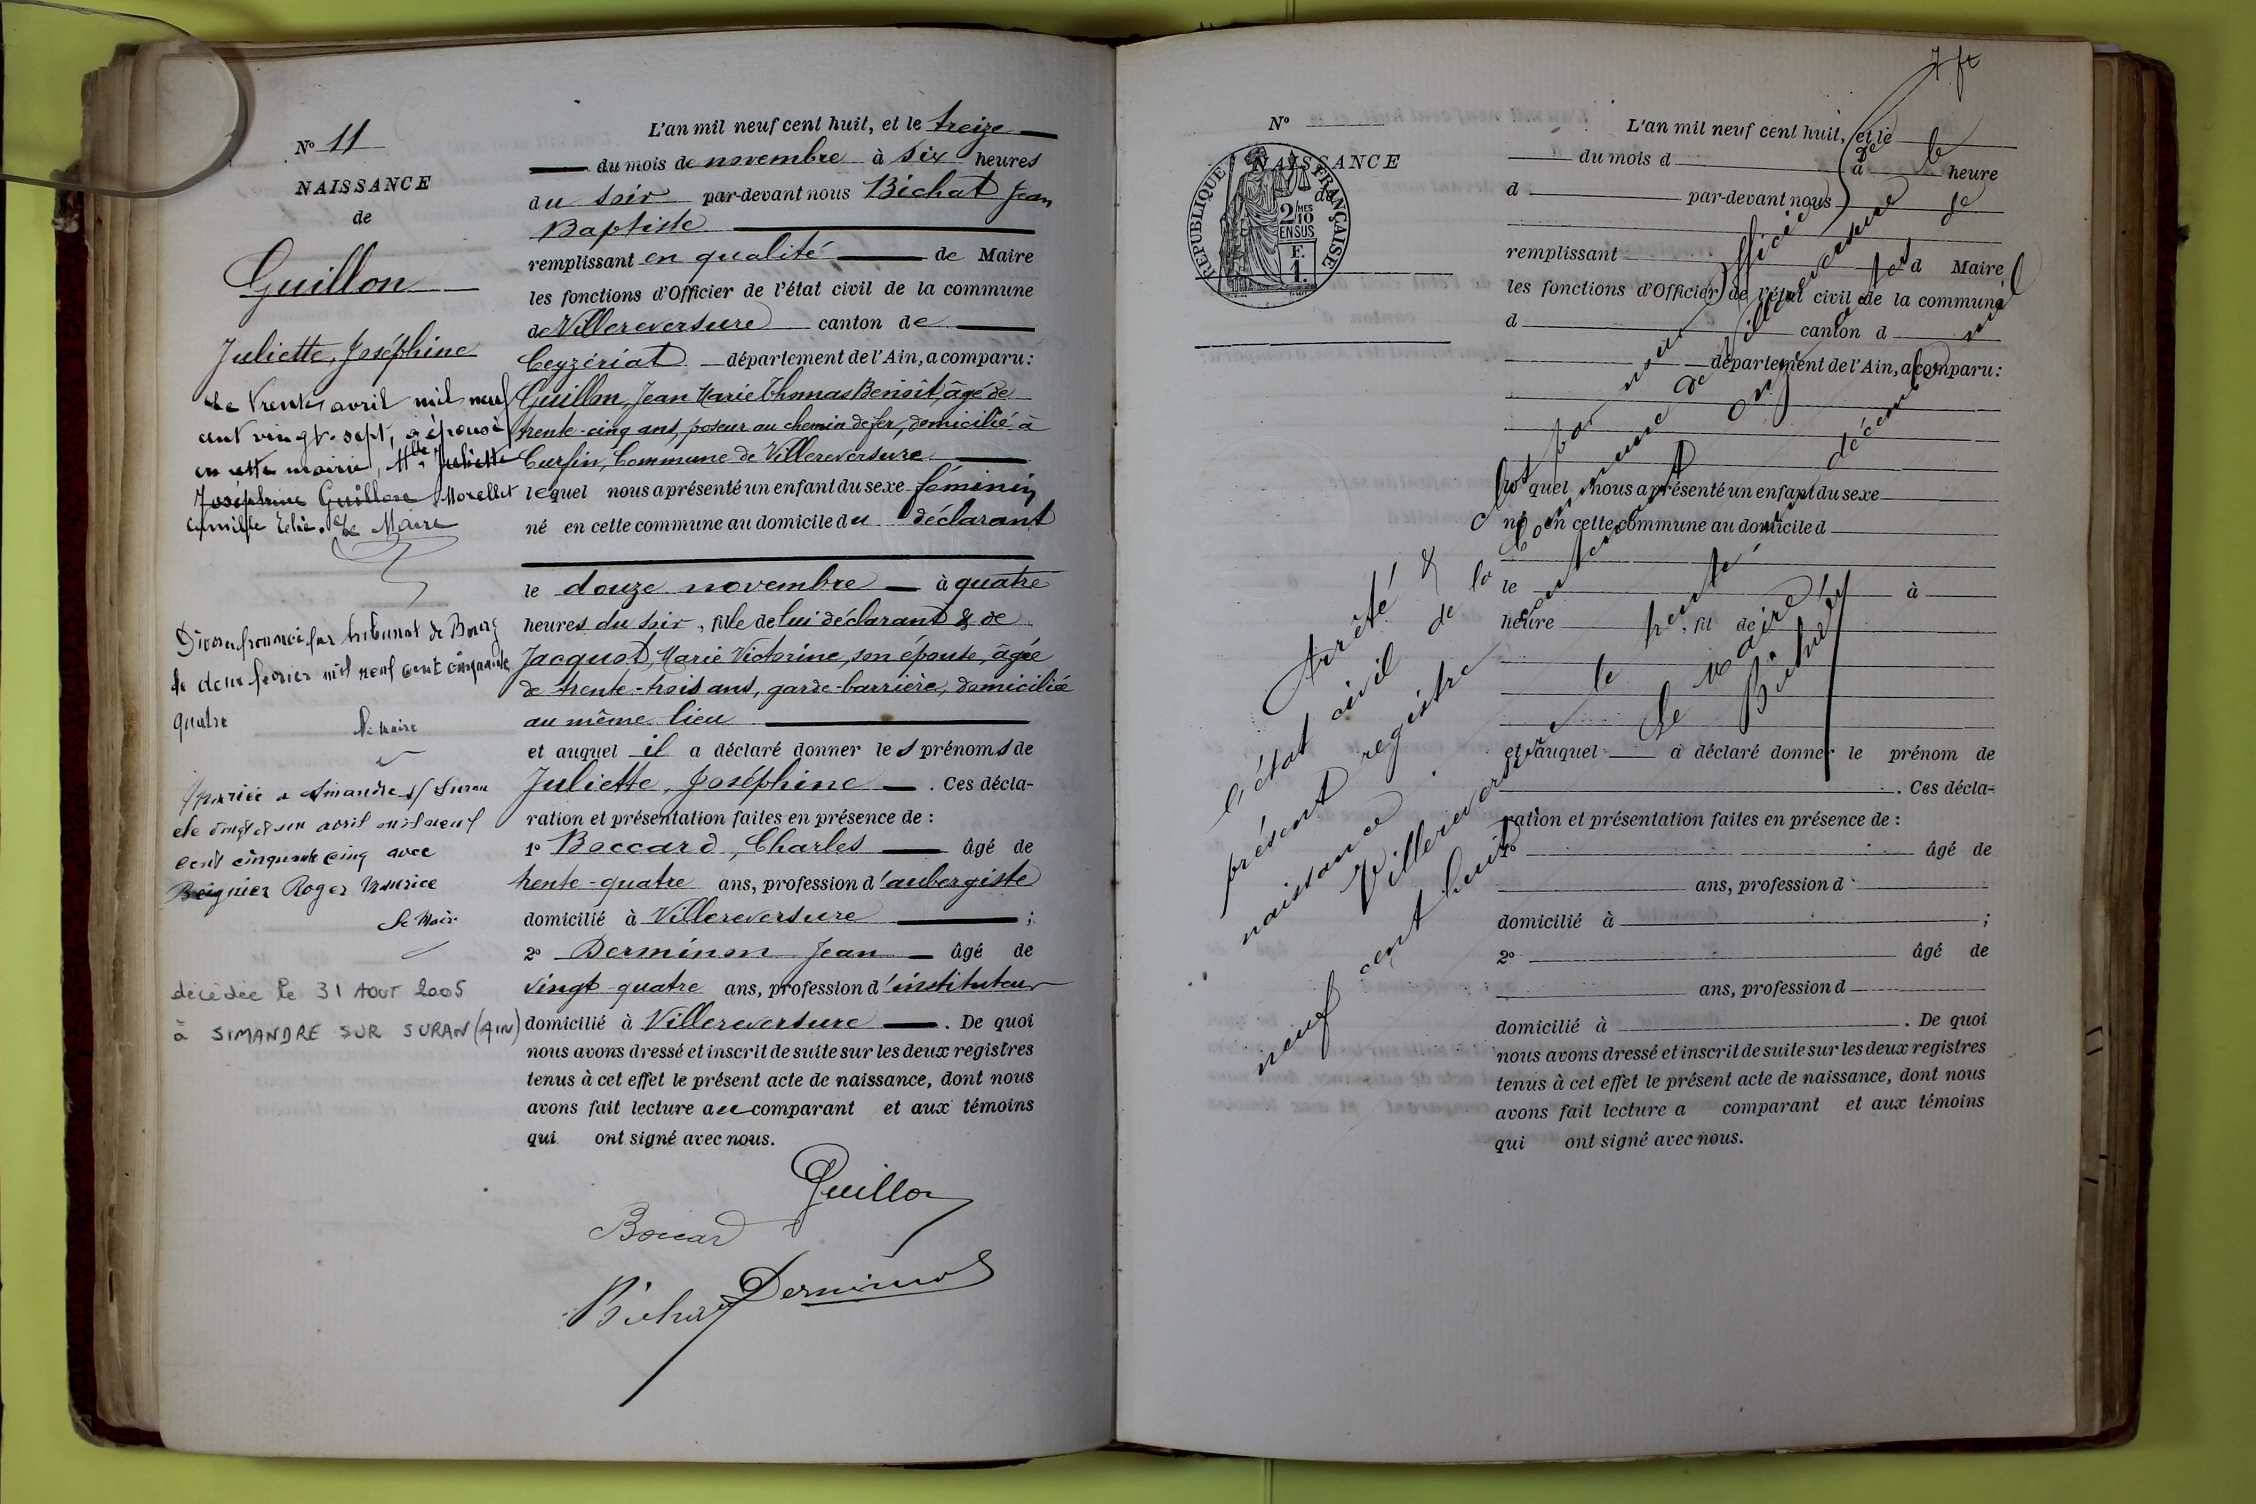 N° 11
NAISSANCE
de
Guillon
Juliette, Joséphine
Le trente avril mil neuf
cent vingt-sept, a épousé
en cette mairie, Mlle Juliette
Joséphine Guillon Morellet
Camille Le Maire
Divorce prononcé par tribunal de Bourg
le deux février mil neuf cent cinquante
quatre
Le Maire
Mariée à Simandre s/ Suran
le vingt et un avril mil neuf
cent cinquante cinq avec
Beignier Roger Maurice
Le Maire
décédée le 31 AOUT 2005
à SIMANDRE SUR SURAN (AIN)
L'an mil neuf cent huit, et le treize
du mois de novembre à six heures
du soir par-devant nous Bichat Jean
Baptiste
remplissant en qualité de Maire
les fonctions d'Officier de l'état civil de la commune
de Villereversure canton de
Ceyzériat département de l'Ain, a comparu:
Guillon, Jean Marie Thomas Benoît, âgé de
trente-cinq ans, poseur au chemin de fer, domicilié à
Curfin, Commune de Villereversure
lequel nous a présenté un enfant du sexe féminin
né en cette commune au domicile du déclarant
le douze novembre à quatre
heures du soir, fille de lui déclarant & de
Jacquot, Marie Victorine, son épouse, âgée
de trente-trois ans, garde-barrière, domiciliée
au même lieu
et auquel il a déclaré donner les prénoms de
Juliette, Joséphine. Ces décla-
ration et présentation faites en présence de :
1° Boccard, Charles âgé de
trente-quatre ans, profession d'aubergiste
domicilié à Villereversure ;
2° Derminon Jean âgé de
vingt-quatre ans, profession d'instituteur
domicilié à Villereversure. De quoi
nous avons dressé et inscrit de suite sur les deux registres
tenus à cet effet le présent acte de naissance, dont nous
avons fait lecture au comparant et aux témoins
qui ont signé avec nous.
Guillon
Boccard
Bichat Derminon
N°
NAISSANCE
de
RÉPUBLIQUE FRANÇAISE
2/10 MES
EN SUS
F.
1.
L'an mil neuf cent huit, et le
du mois d à heure
d par-devant nous
remplissant d Maire
les fonctions d'Officier de l'état civil de la commune
d canton d
département de l'Ain, a comparu:
lequel nous a présenté un enfant du sexe
né en cette commune au domicile d
le à
heure , fil de
et auquel a déclaré donner le prénom de
. Ces décla-
ration et présentation faites en présence de :
1° âgé de
ans, profession d
domicilié à ;
2° âgé de
ans, profession d
domicilié à . De quoi
nous avons dressé et inscrit de suite sur les deux registres
tenus à cet effet le présent acte de naissance, dont nous
avons fait lecture a comparant et aux témoins
qui ont signé avec nous.
Arrêté & clos par nous officier de
l'état civil de la Commune de Villereversure le
présent registre contenant onze actes de
naissance.
Villereversure le trente décembre mil
neuf cent huit
Le Maire
Bichat